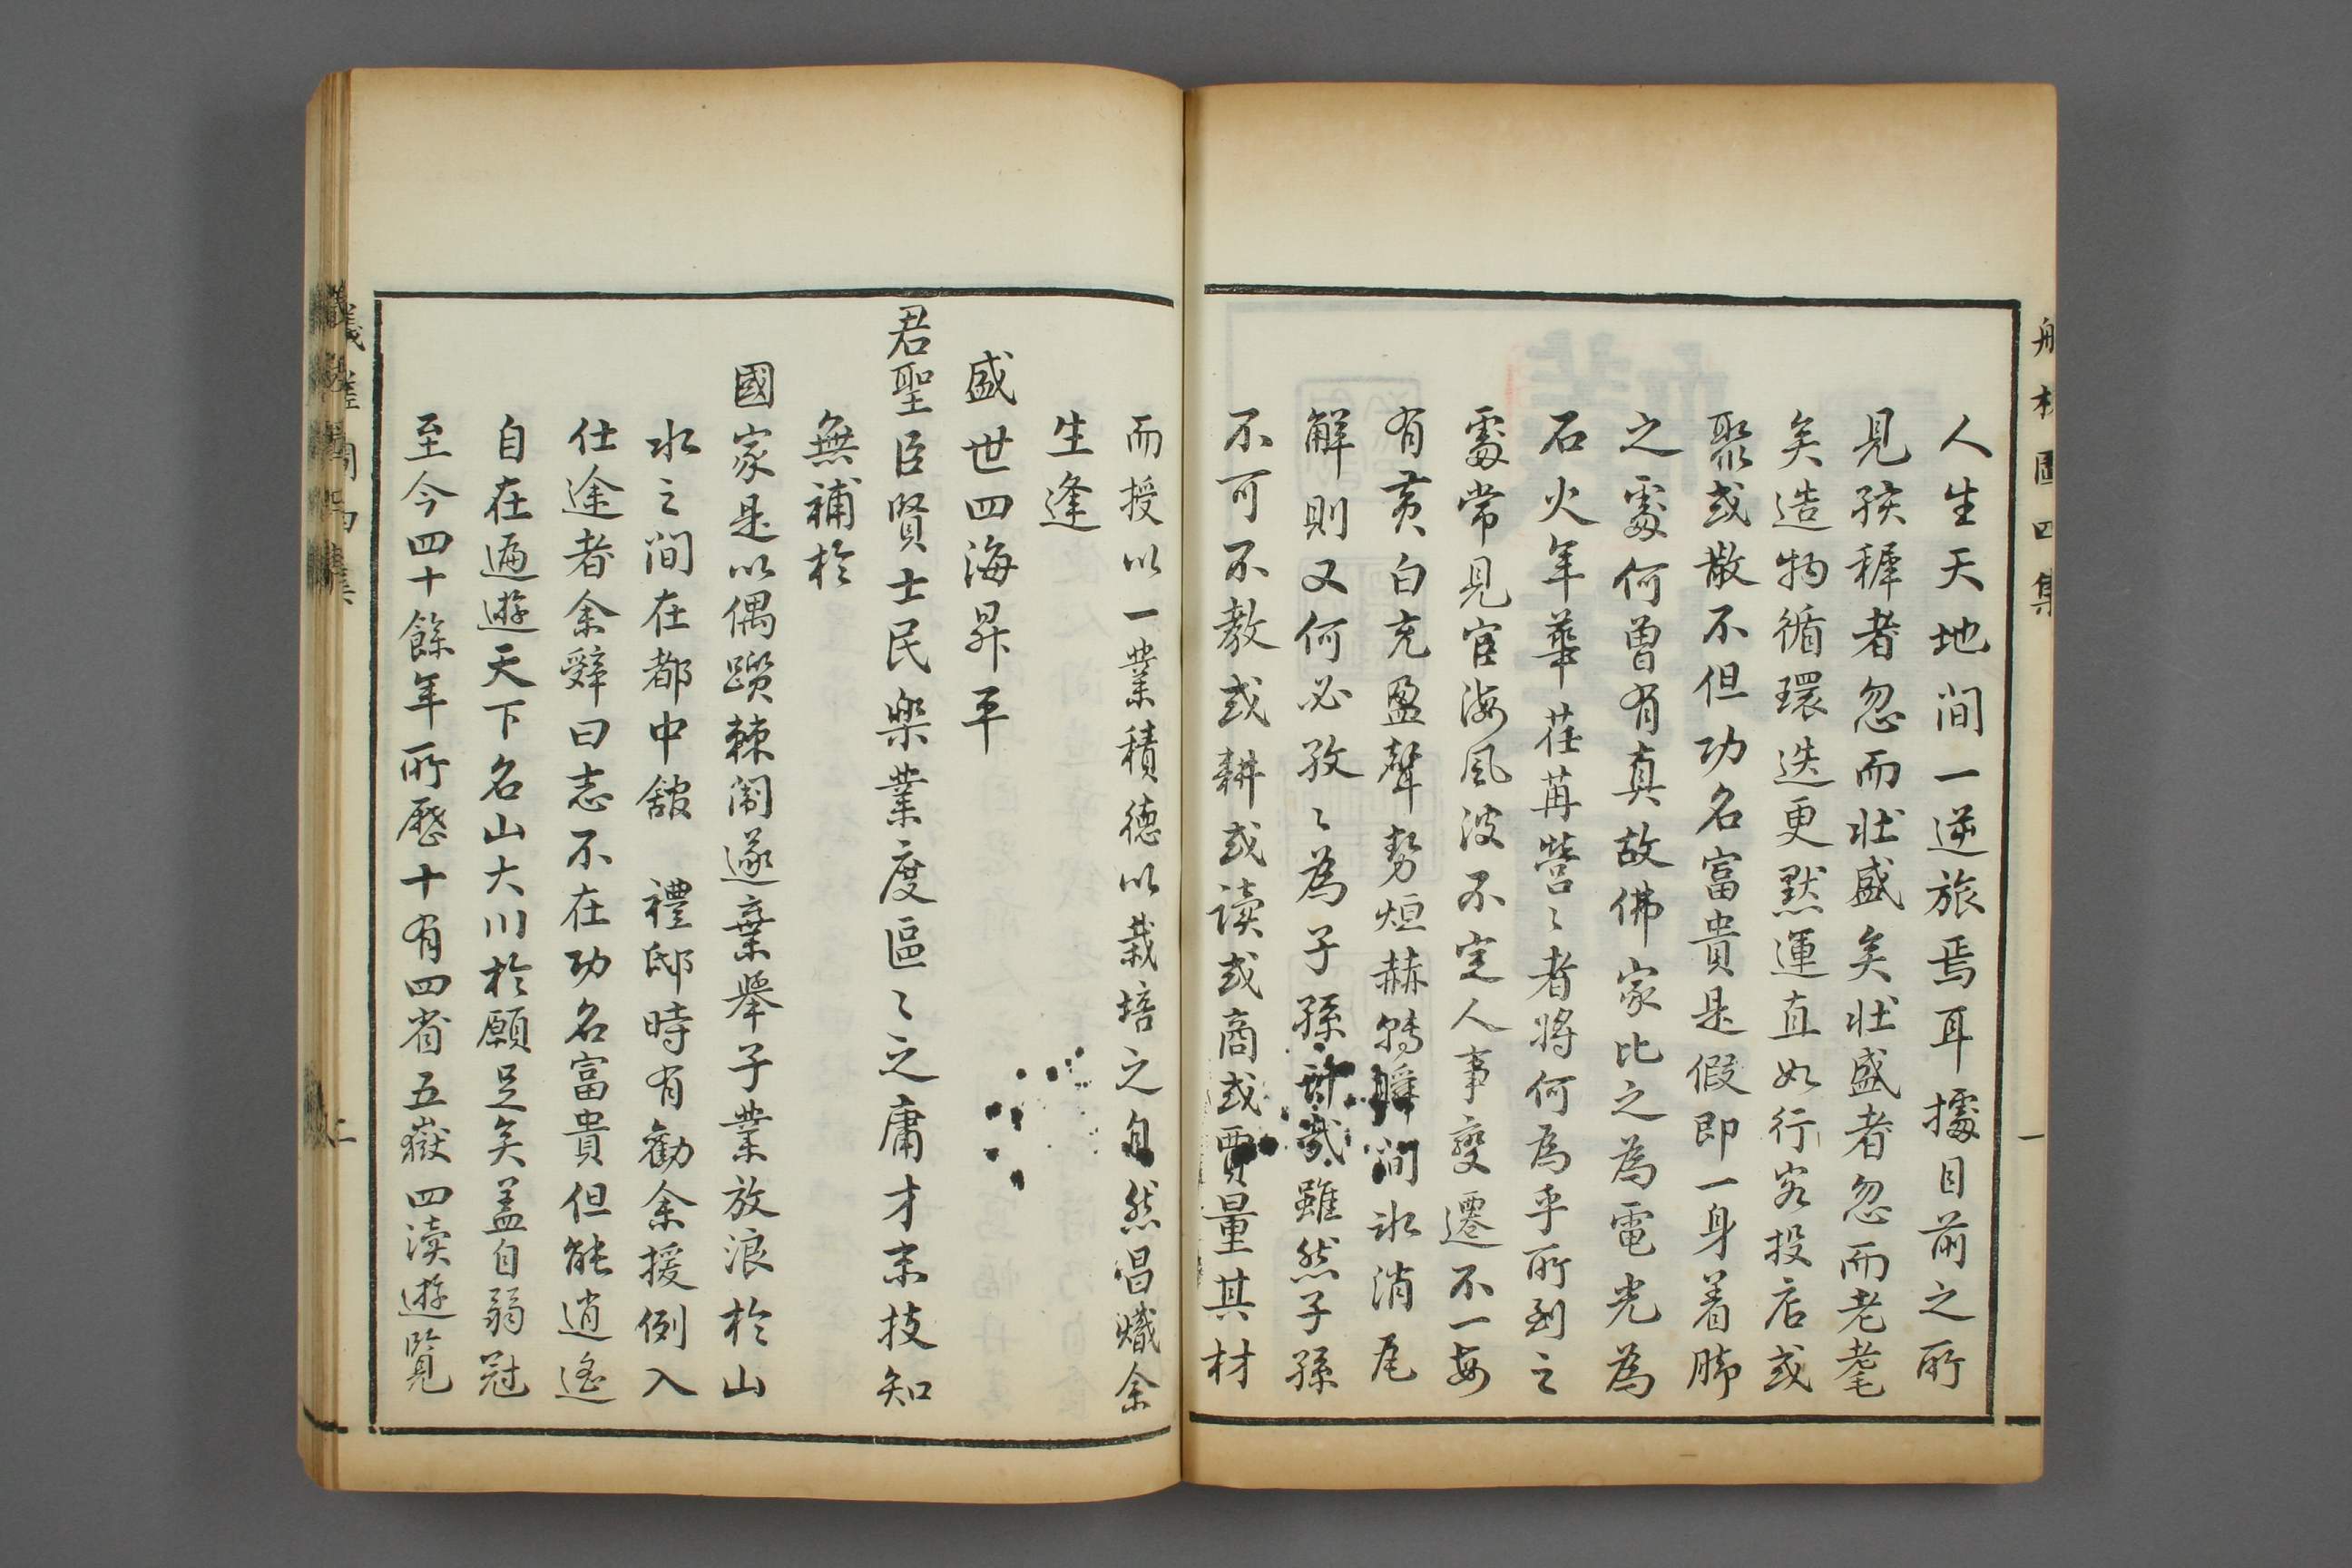 人生天地間一逆旅焉耳據目前之所
見孩穉者忽而壯盛矣壯盛者忽而老耄
矣造物循環迭更默運直如行客投店或
聚或散不但功名富貴是假即一身着腳
之處何曾有真故佛家比之為電光為
石火年華荏苒營〻者將何為乎所到之
處常見宦海風波不定人事變遷不一每
有黃白充盈聲勢烜赫轉瞬間冰消瓦
解則又何必孜〻為子孫計哉雖然子孫
不可不教或耕或读或商或賈量其材
而授以一業積德以栽培之自然昌熾余
生逢
盛世四海昇平
君聖臣賢士民樂業度區〻之庸才末技知
無補於
國家是以偶躓棘闈遂棄舉子業放浪於山
水之間在都中舘 禮邸時有勸余援例入
仕途者余辭曰志不在功名富貴但能逍遙
自在遍遊天下名山大川於願足矣盖自弱冠
至今四十餘年所歷十有四省五嶽四渎遊覽
四集
一
二